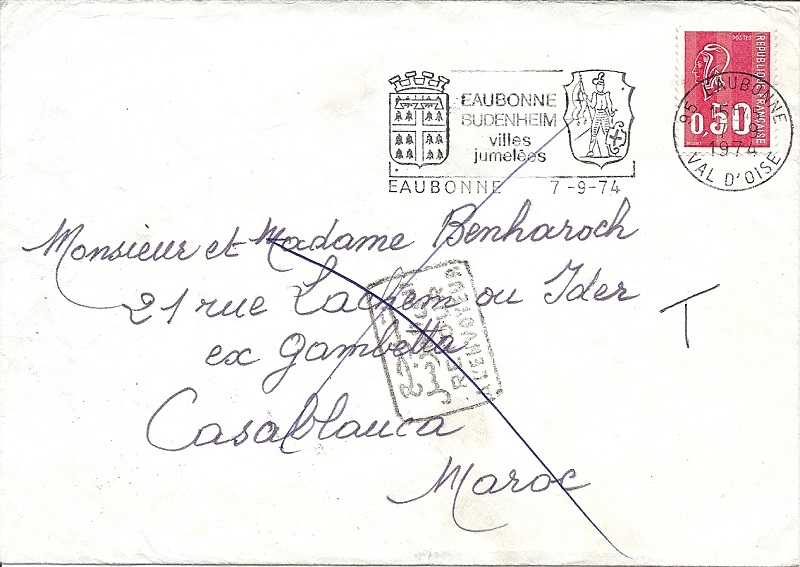 EAUBONNE
BUDENHEIM
villes
jumelées
EAUBONNE 7-9-74
POSTES
REPUBLIQUE FRANÇAISE
0,50
95 EAUBONNE
15H
7-9
1974
VAL D'OISE
Monsieur et Madame Benharoch
21 rue Lachem ou Ider
ex Gambetta
Casablanca
Maroc
T
RETOUR
A L'ENVOYEUR